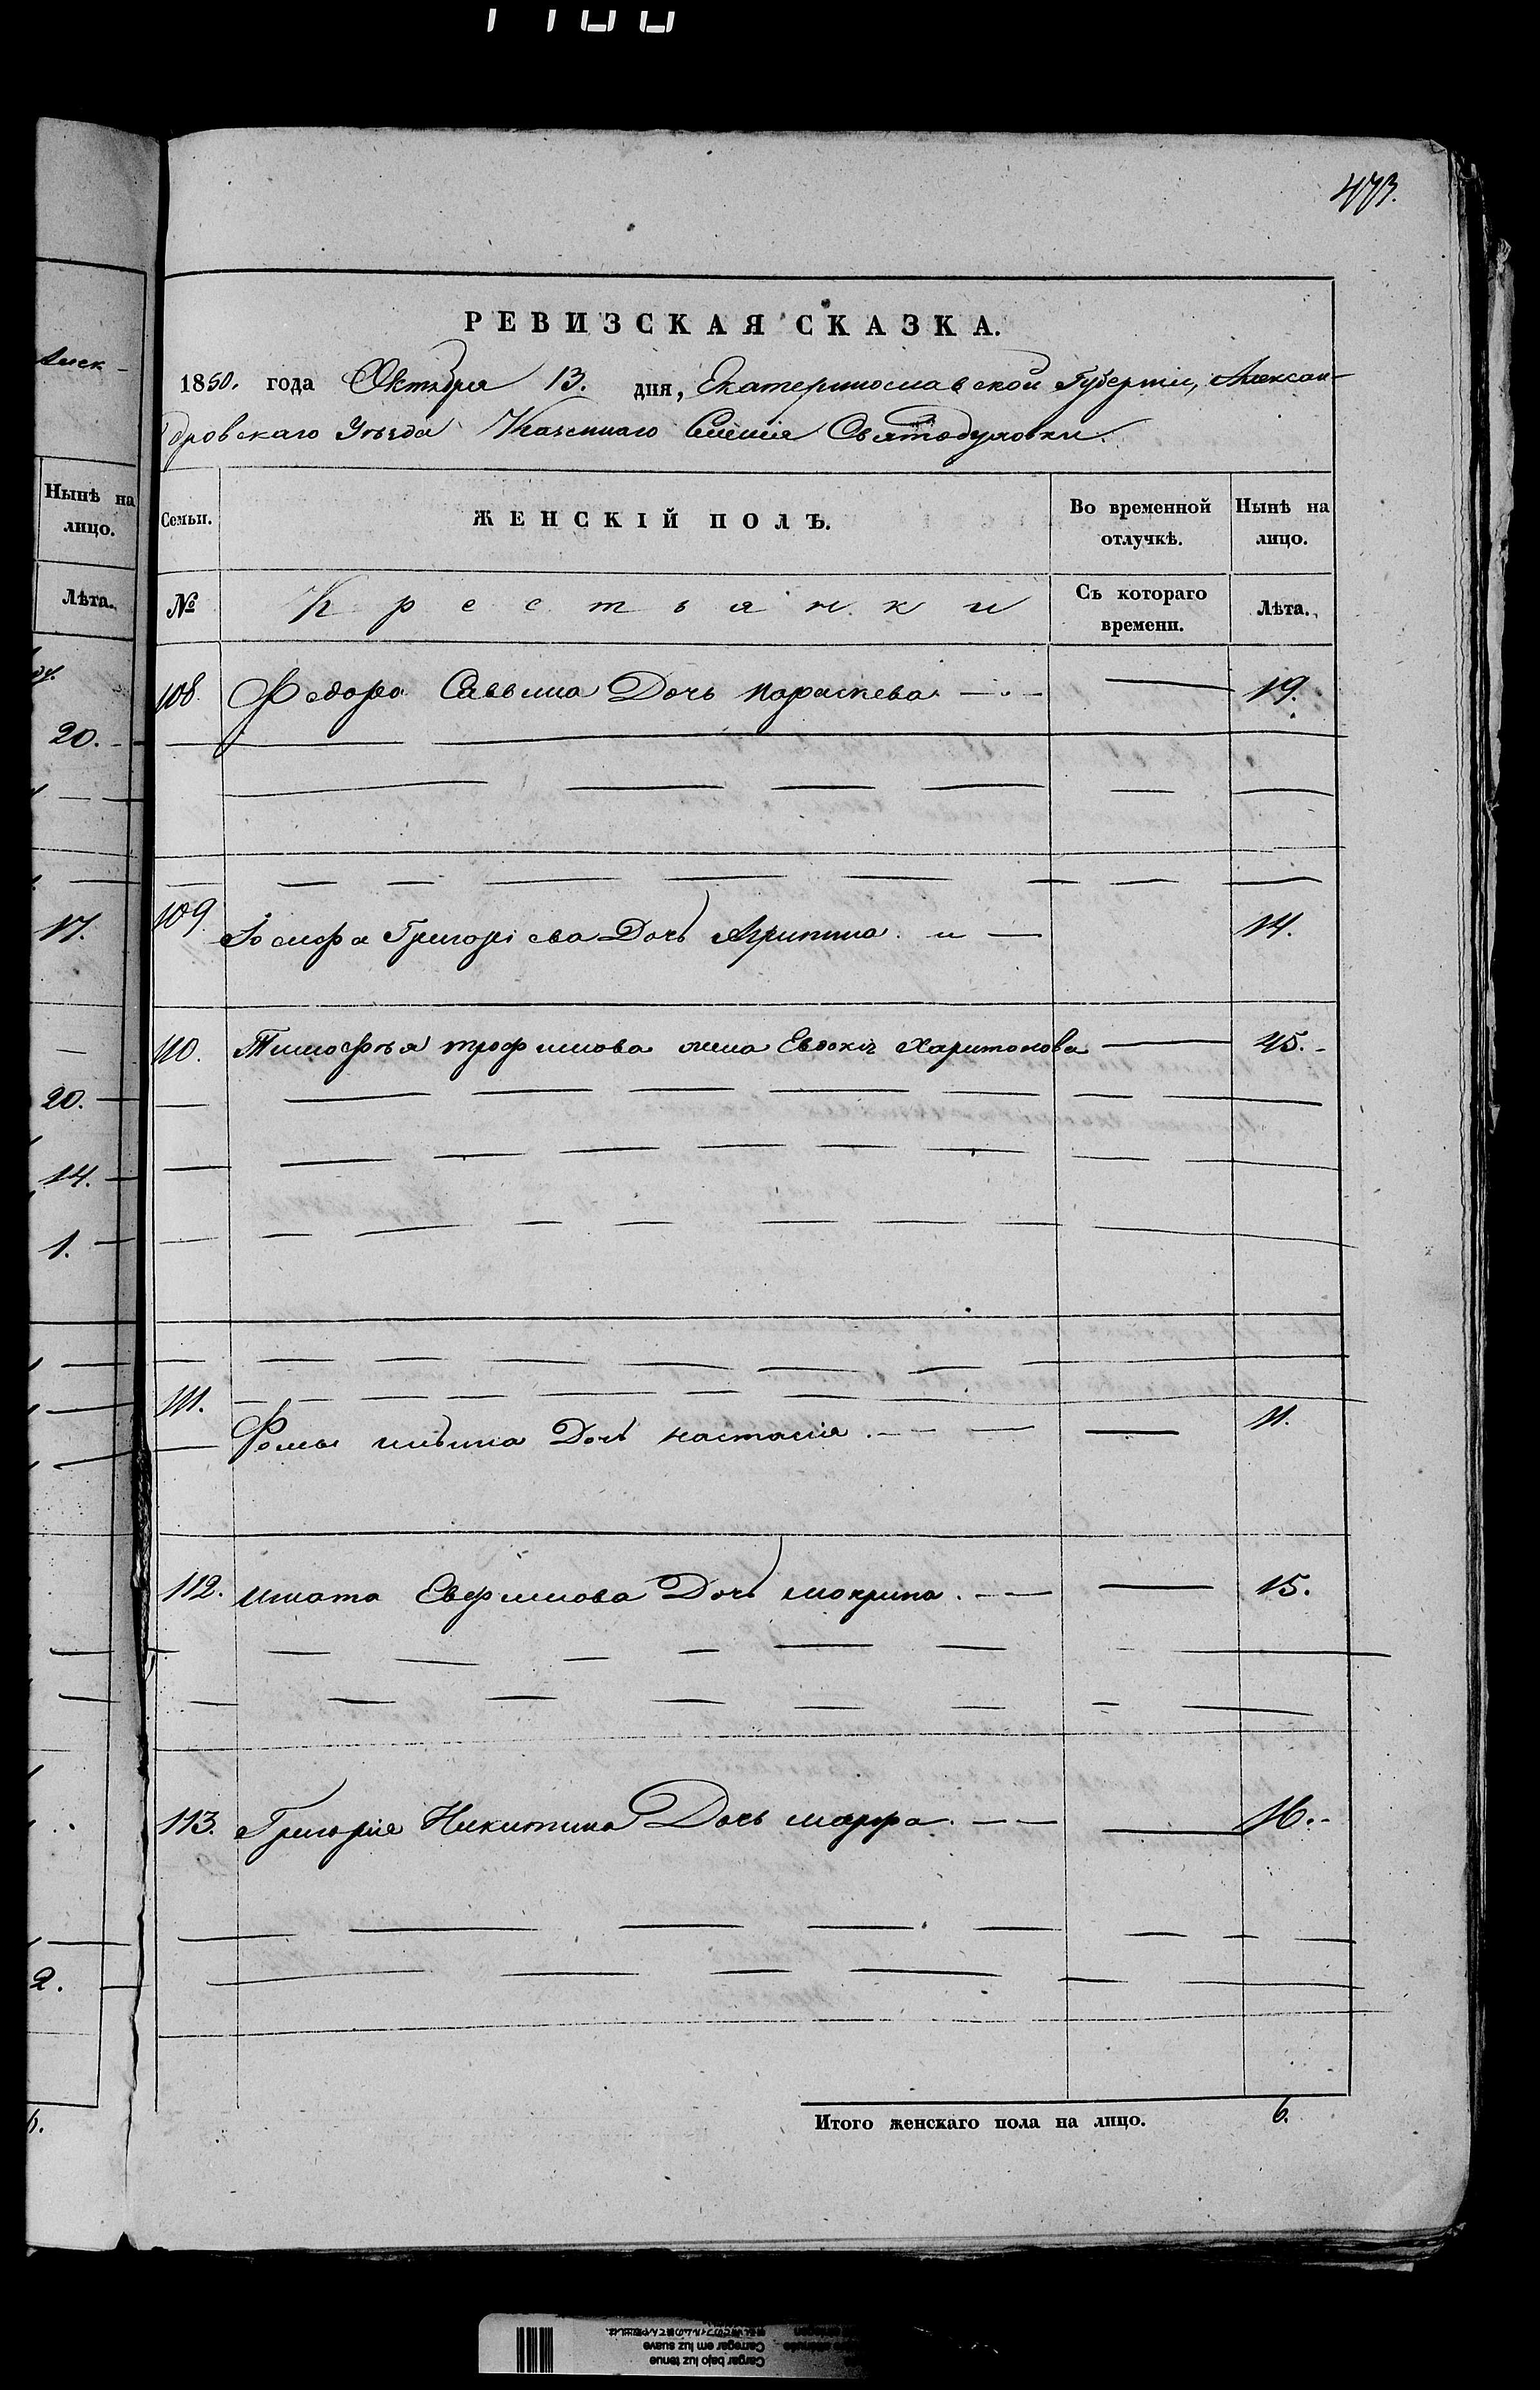 473.
РЕВИЗСКАЯ СКАЗКА.
1850. года Октября 13. дня, Екатеринославской Губернiи, Алексан-
дровскаго Уѣзда Казеннаго Святодуховки.
Семьи. ЖЕНСКIЙ ПОЛЪ. Во временной отлучкѣ. Нынѣ на лицо.
№ Крестьянки Съ котораго времени. Лѣта.
108. Федора Саввина Дочь параскева 19.
109. Iосифа Григорiева Дочь Агрипина 14.
110. Тимофѣя трофимова жена Евдокiя Харитонова 45.
111.
Фомы ильина Дочь настасiя 11.
112. игната Евфимова Дочь мокрина 15.
113. Григорiя Никитина Дочь марфа 16.
Итого женскаго пола на лицо. 6.
Нынѣ на
лицо.
Лѣта.
20.
17.
20.
14.
1.
2.
Cargar bajo luz tenue
Carregar em luz suave